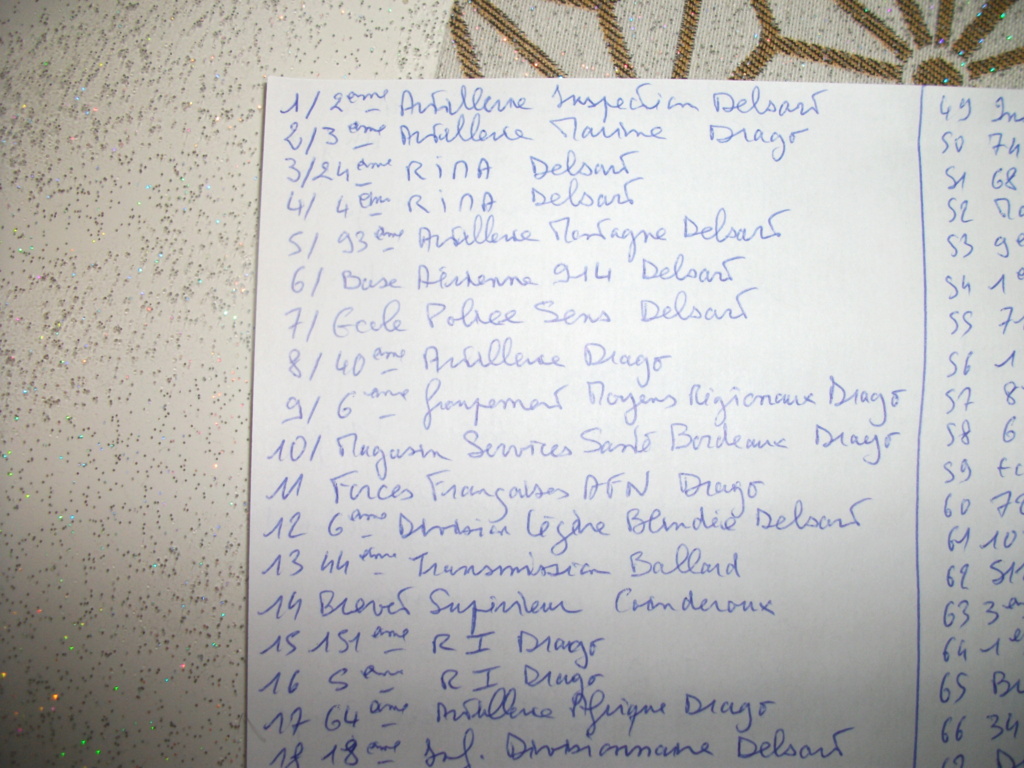 1/ 2ème Artillerie Inspection Delsart
2/ 3ème Artillerie Marine Drago
3/ 24ème RIMA Delsart
4/ 4ème RIMA Delsart
5/ 93ème Artillerie Montagne Delsart
6/ Base Aérienne 914 Delsart
7/ Ecole Police Sens Delsart
8/ 40ème Artillerie Drago
9/ 6ème Groupement Moyens Régionaux Drago
10/ Magasin Services Santé Bordeaux Drago
11 Forces Françaises AFN Drago
12 6ème Division Légère Blindée Delsart
13 44ème Transmission Ballard
14 Brevet Supérieur Coinderoux
15 151ème RI Drago
16 5ème RI Drago
17 64ème Artillerie Afrique Drago
18 18ème Inf. Divisionnaire Delsart
49
50 74
51 68
52
53
54
55
56
57
58
59
60
61
62
63
64
65
66 34